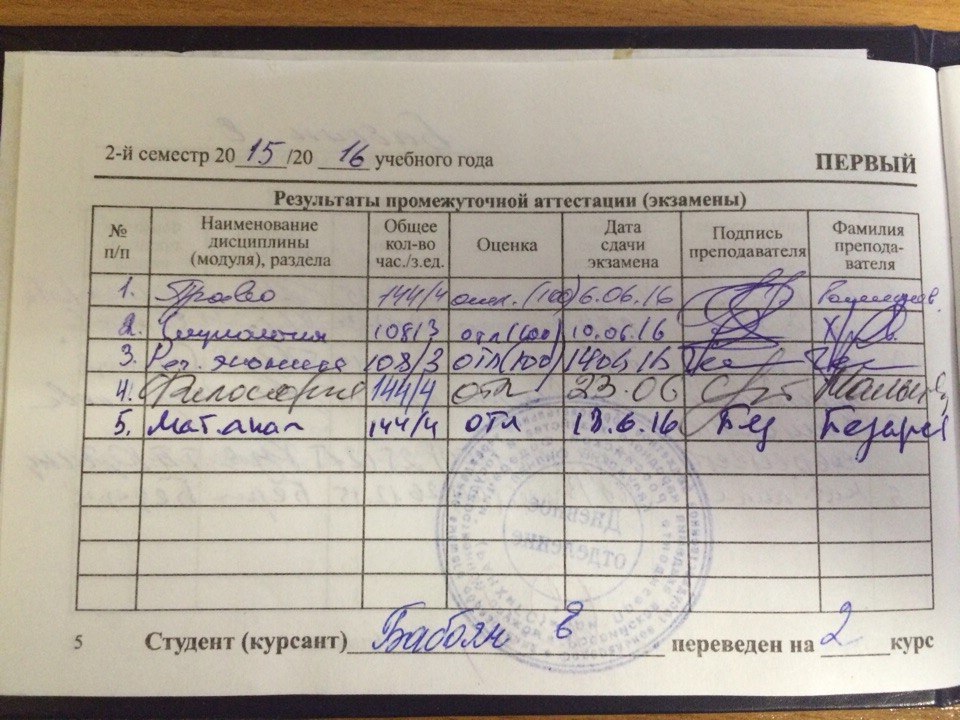 2-й семестр 20 15 /20 16 учебного года
ПЕРВЫЙ
Результаты промежуточной аттестации (экзамены)
№ п/п Наименование дисциплины (модуля), раздела Общее кол-во час./з.ед. Оценка Дата сдачи экзамена Подпись преподавателя Фамилия препода-вателя
1. Право 144/4 отл. (100) 6.06.16
2. Социология 108/3 отл (100) 10.06.16
3. Рег. экономика 108/3 отл (100) 14.06.16
4. Философия 144/4 отл 23.06
5. Мат.анал 144/4 отл 18.6.16 Без
Дневное
отделение
5 Студент (курсант) Бабоян Е переведен на 2 курс